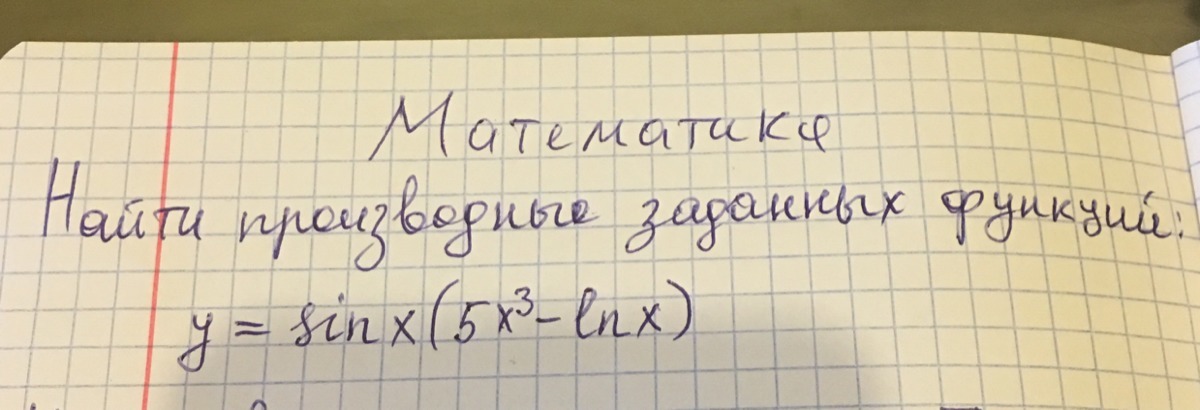 Математика
Найти производные заданных функций:
y = sin x (5x³ - ln x)